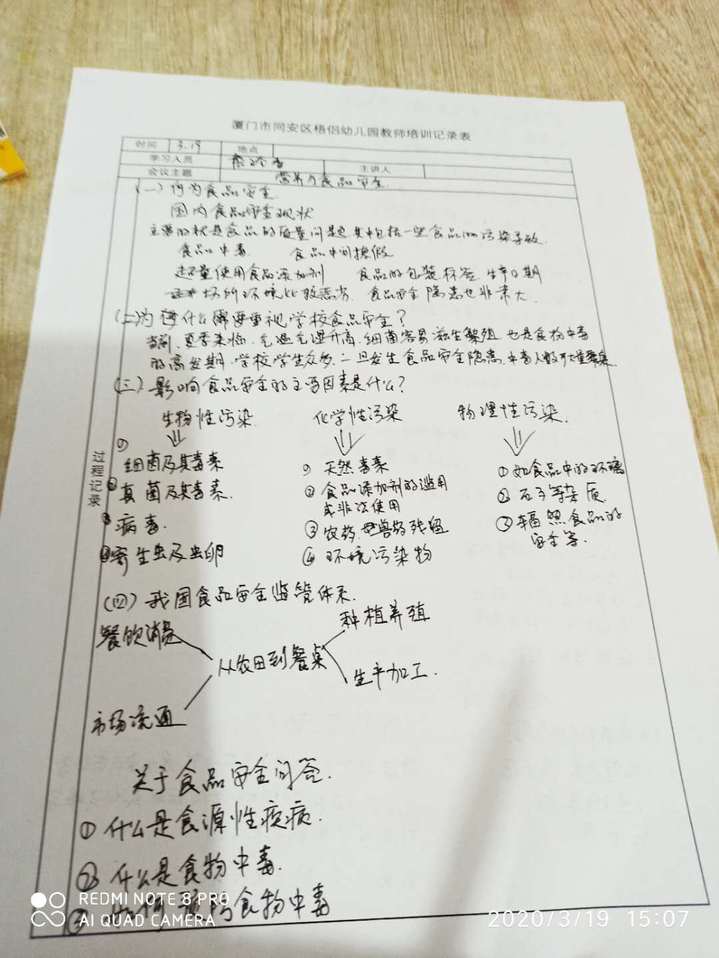 厦门市同安区梧侣幼儿园教师培训记录表
时间 3.19 地点
学习人员 主讲人
会议主题 营养与食品安全
过程记录
(一) 何为食品安全
国内食品安全现状
主要的就是食品的质量问题 其中包括一些食品的污染导致
食品中毒 食品中间掺假
超量使用食品添加剂 食品的包装标签 生产日期
场所环境比较恶劣 食品安全隐患也非常大.
(二) 为什么要重视学校食品安全?
当前, 夏季来临, 气温气湿升高, 细菌容易滋生繁殖 也是食物中毒
的高发期. 学校学生众多, 一旦发生食品安全隐患, 中毒人数
(三) 影响食品安全的主要因素是什么?
生物性污染 化学性污染 物理性污染.
① 细菌及其毒素 ① 天然毒素 ① 如食品中的玻璃
② 真菌及其毒素. ② 食品添加剂的滥用 ② 石子等杂质
或非法使用
③ 病毒. ③ 农药 兽药残留 ③ 辐照食品的
安全等.
④ 寄生虫及虫卵 ④ 环境污染物
(四) 我国食品安全监管体系.
餐饮消费 种植养殖
从农田到餐桌
市场流通 生产加工.
关于食品安全问答.
① 什么是食源性疾病.
② 什么是食物中毒.
③ 食物中毒
REDMI NOTE 8 PRO
AI QUAD CAMERA
2020/3/19 15:07